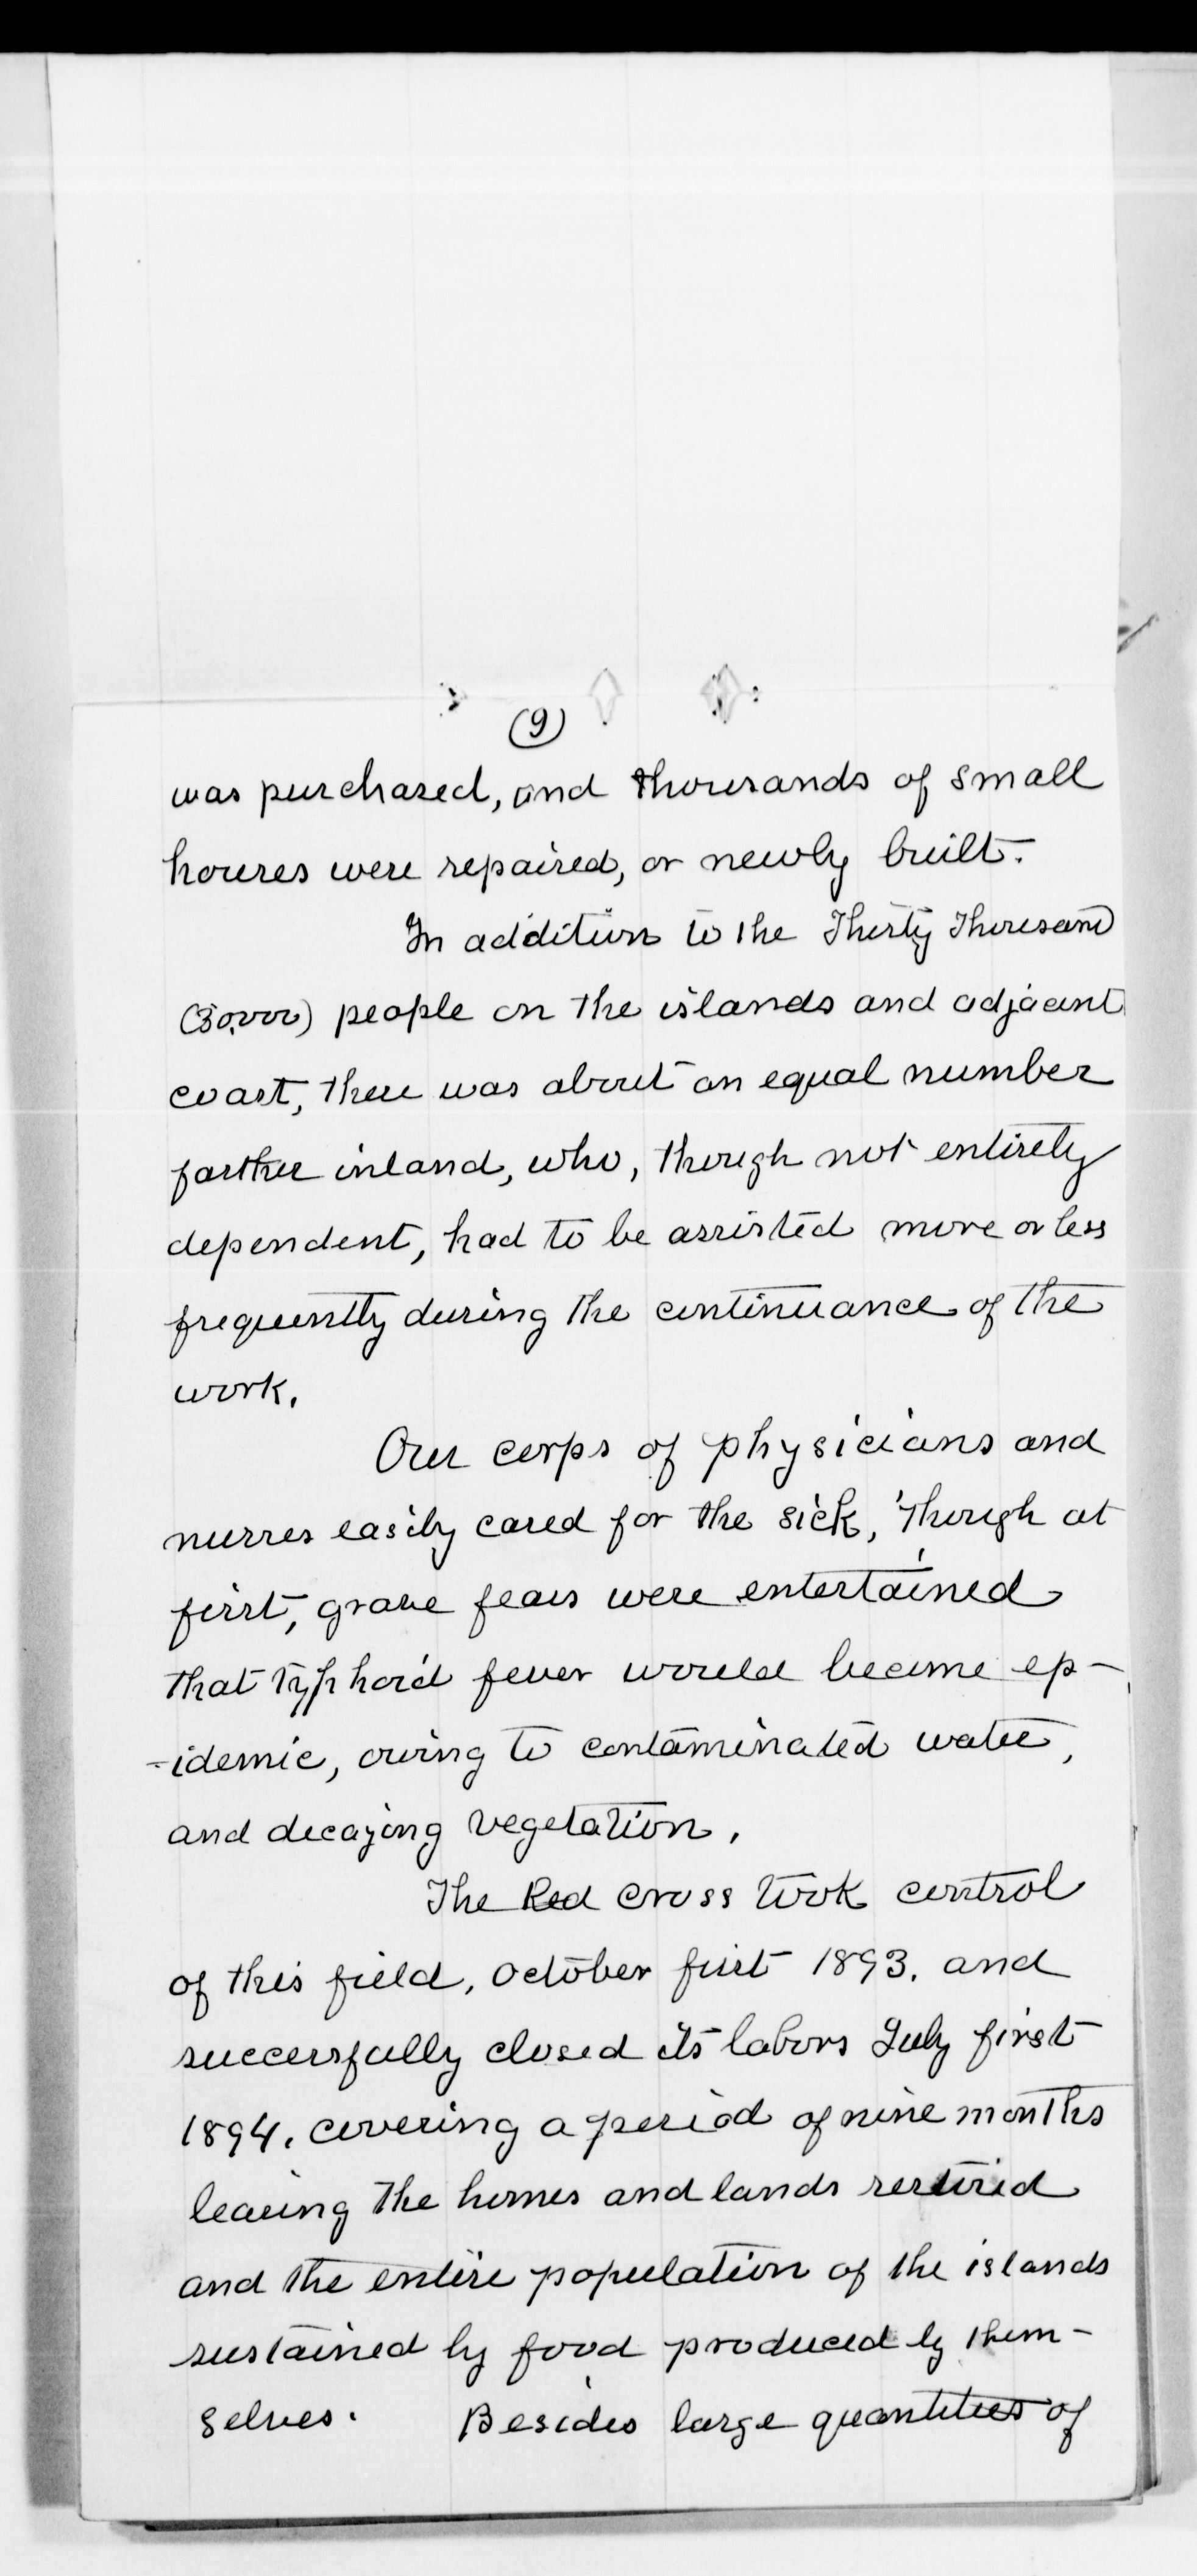 (9)
was purchased, and thousands of small
houses were repaired, or newly built.
In addition to the Thirty Thousand
(30,000) people on the islands and adjacent
coast, there was about an equal number
farther inland, who, though not entirely
dependent, had to be assisted more or less
frequently during the continuance of the
work.
Our corps of physicians and
nurses easily cared for the sick, though at
first, grave fears were entertained
that Typhoid fever would become ep-
-idemic, owing to contaminated water,
and decaying vegetation.
The Red Cross took control
of this field, October first 1893. and
successfully closed its labors July first
1894. covering a period of nine months
leaving the homes and lands restored
and the entire population of the islands
sustained by food produced by them-
selves. Besides large quantities of